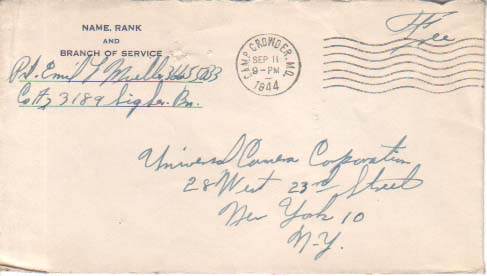 NAME, RANK
AND
BRANCH OF SERVICE
Pvt. Emil L Mueller
Co A, 3189 Sig Sv. Bn.
CAMP CROWDER, MO.
SEP 11
9-PM
1944
Free
Universal Camera Corporation
28 West 23rd Street
New York 10
N-Y.